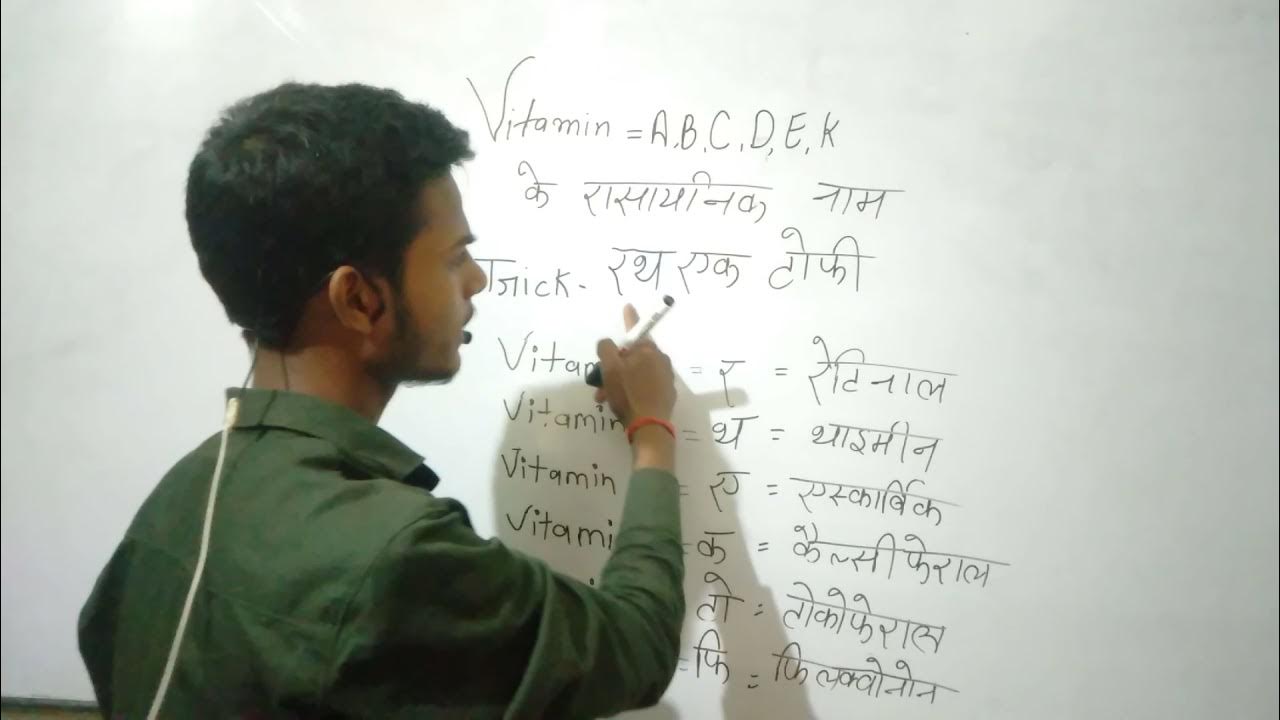 Vitamin = A,B,C,D,E,K
के रासायनिक नाम
रथ एक टोफी
= र = रेटिनाल
Vitamin = थ = थाइमीन
Vitamin = ए = एस्कार्बिक
= क = कैल्सीफेराल
टो = टोकोफेराल
= फि = फिलक्वोनोन